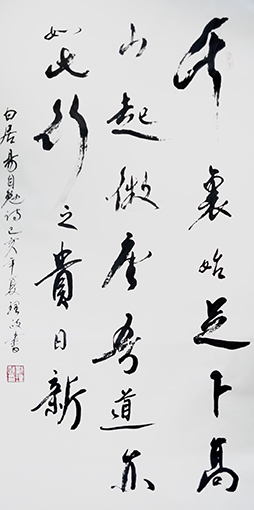 千裏始足下高
山起微塵吾道亦
如此行之貴日新
白居易自勉詩己亥年夏書